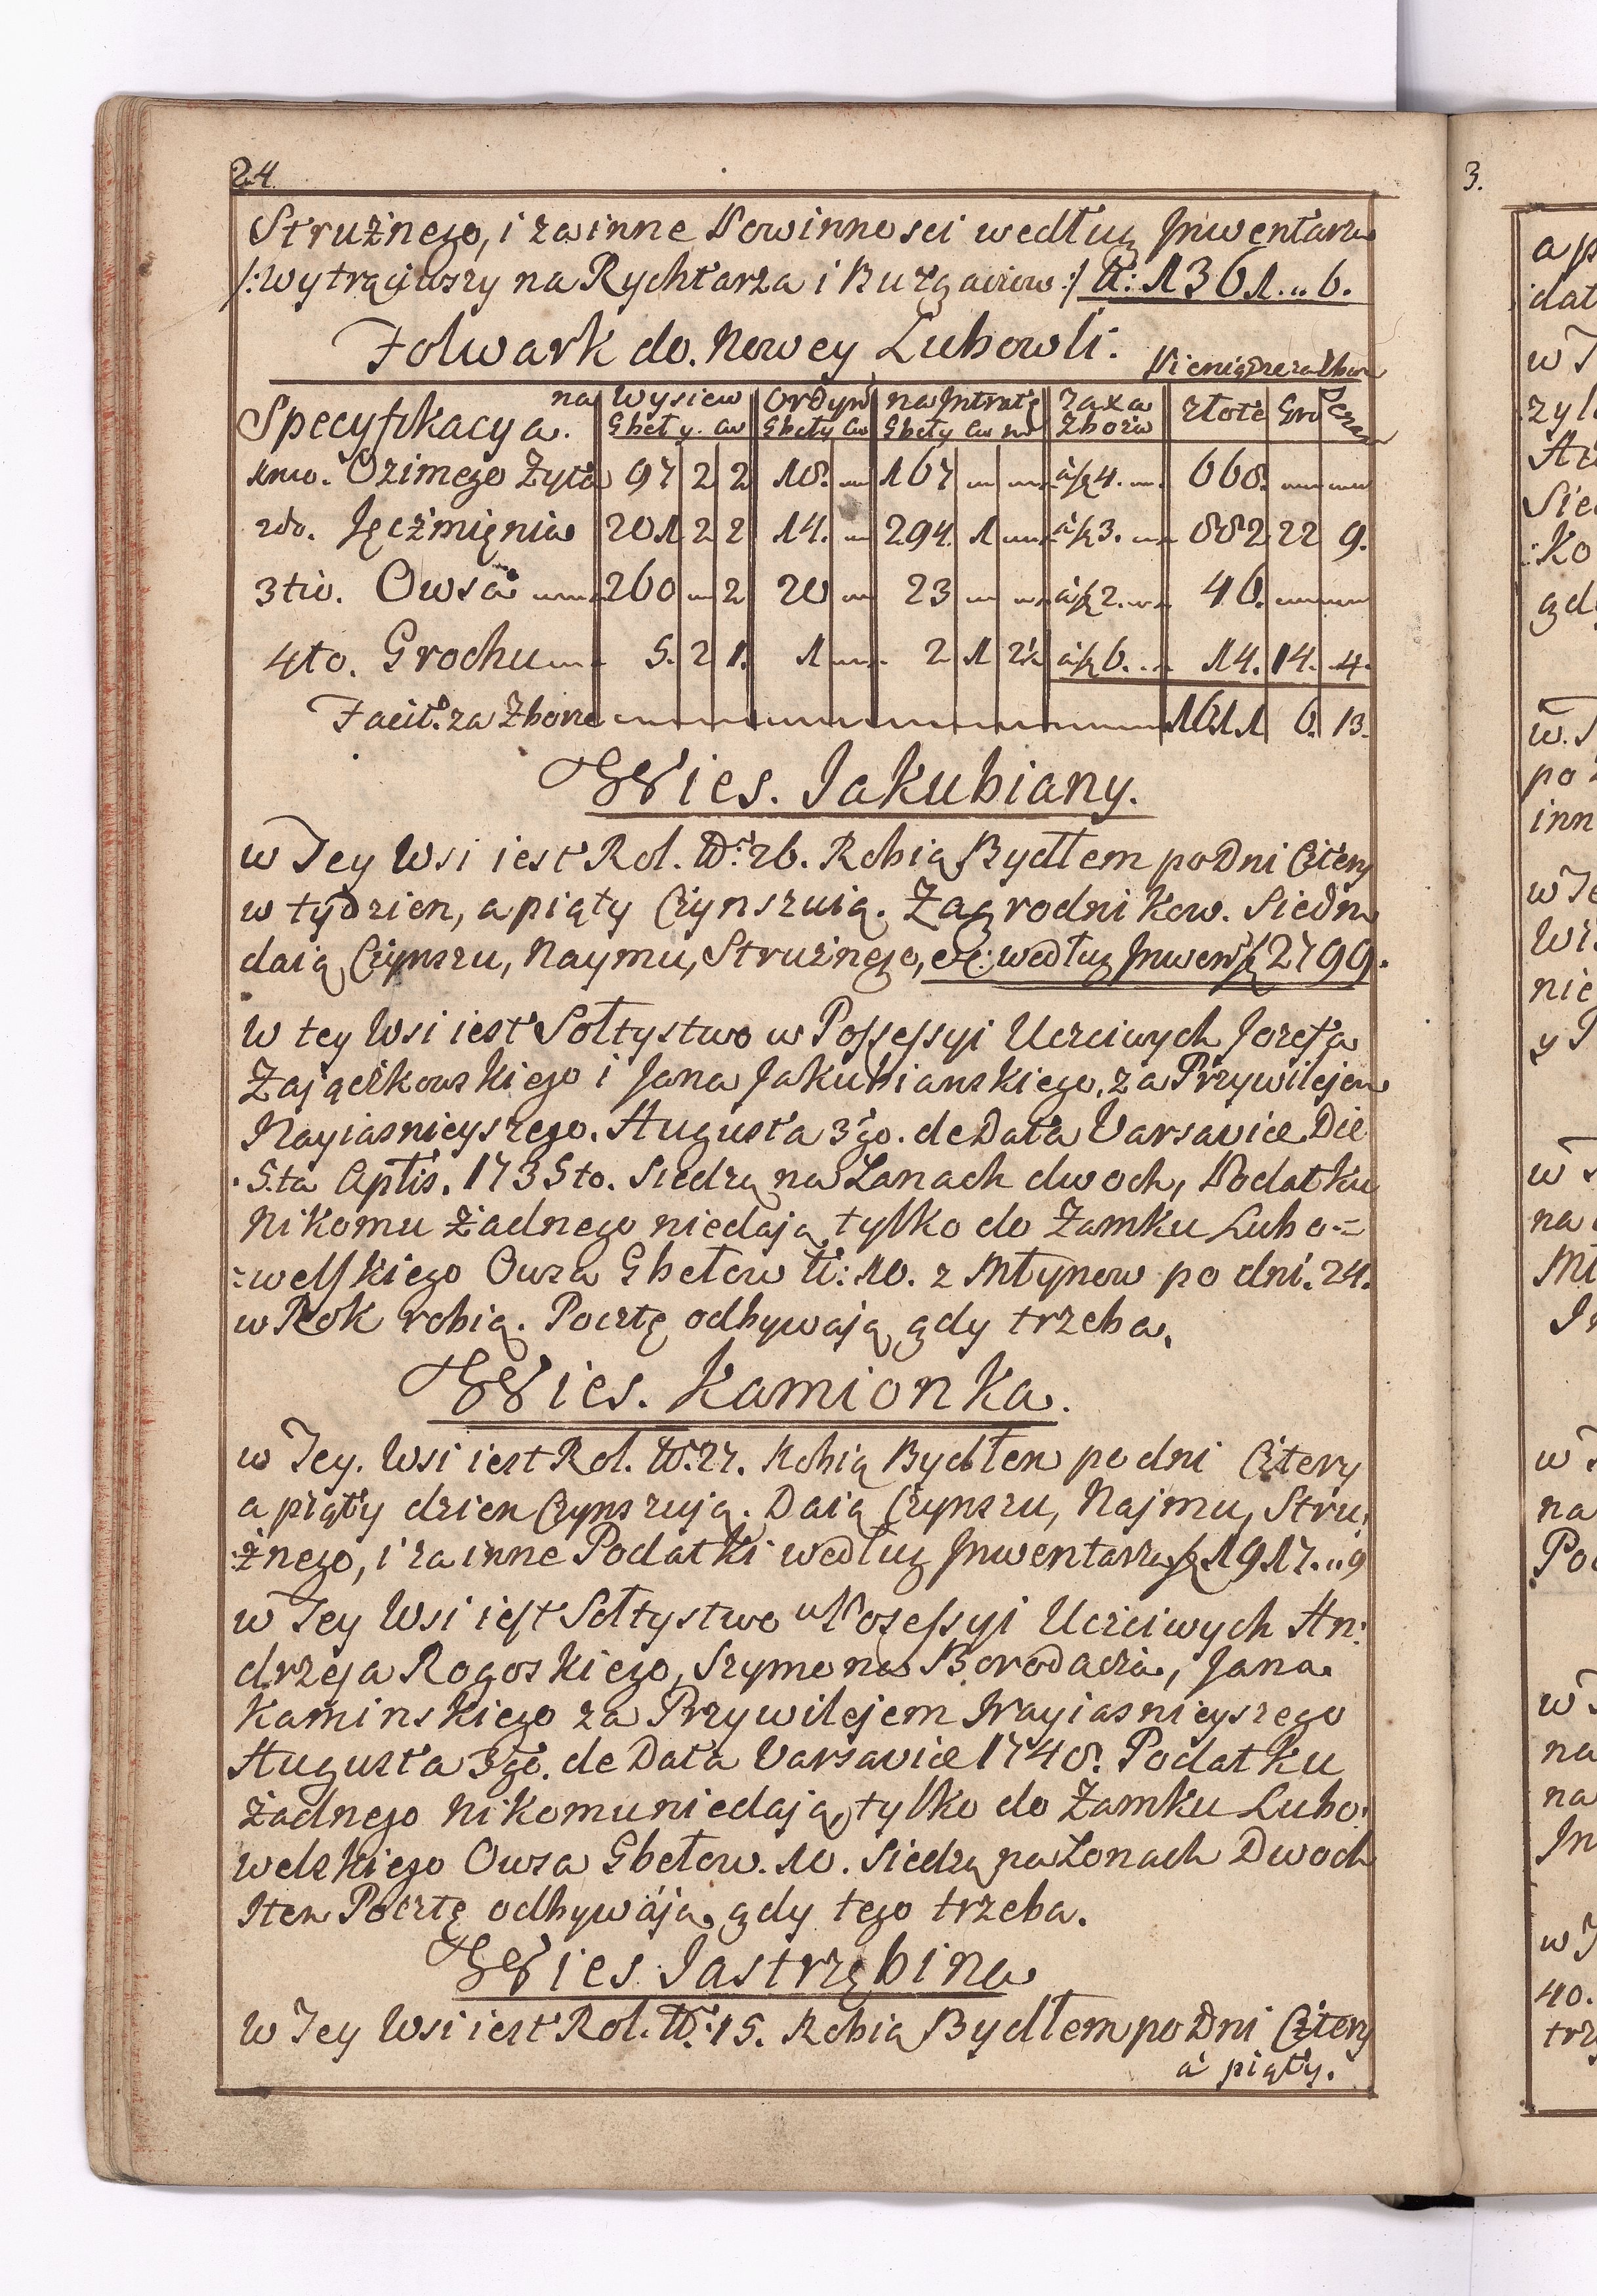 24.
Strużnego, i za inne Powinnosci według Jnwentarza
/:wytrąciwszy na Rychtarza i Burgarow:/ tt: 1361... 6.
Folwark do. Nowey Lubowli.
Pieniądze za Zboże
Specyfikacya. na Wysiew Ordyn na Jntratę Taxa Złote Gro
Gbeły. Ćw Gbeły Ćw Gbeły Ćw Zboża
1mo. Ozimego Żyta 97 2 2 18. 167 à 4. 668.
2do. Jęczmięnia 201 2 2 14. 294. 1 à 3. 882 22 9.
3tio. Owsa 260 2 20 23 à 2. 46.
4to. Grochu 5. 2 1. 1 2 1 2½ à 6. 14. 14. 4.
Facit. za Zboże 1611 6. 13.
Wies. Jakubiany.
w Tey Wsi iest Rol. No: 26. Robią Bydłem po Dni Cztery
w tydzien, a piąty Czynszuią. Zagrodnikow. Siedm
daią Czynszu, Naymu, Strużnego, &c: według Jnwen 2799.
W tey Wsi iest Sołtystwo w Possessyi Uczciwych Jozefa
Zajączkowskiego i Jana Jakubianskiego, za Przywilejem
Nayiasnieyszego. Augusta 3go. de Data Varsaviæ Die
5.ta Aplis. 1735to. Siedzą na Łanach dwoch, Podatku
Nikomu żadnego niedają, tylko do Zamku Lubo-=
=welskiego Owsa Gbełow tt: 10. z Młynow po dni. 24.
w Rok robią. Pocztę odbywają gdy trzeba.
Wies. Kamionka.
w Tey. Wsi iest Rol. No. 27. Robią Bydłem po dni Cztery
a piąty dzien Czynszują. Daią Czynszu, Najmu, Stru:
:żnego, i za inne Podatki według Jnwentarza 1917. .. 9
w Tey Wsi iest Sołtystwo w Possessyi Uczciwych An:
drzeja Rogoskiego, Szymona Borodacza, Jana
Kaminskiego za Przywilejem Nayiasnieyszego
Augusta 3go. de Data Varsaviæ 1748. Podatku
żadnego Nikomu niedają, tylko do Zamku Lubo:
welskiego Owsa Gbełow. 10. Siedzą na Łonach Dwoch
Item Pocztę odbywają, gdy tego trzeba.
Wies Jastrzębina
W Tey Wsi iest Rol. No: 15. Robią Bydłem po Dni Cztery
a piąty.
3.